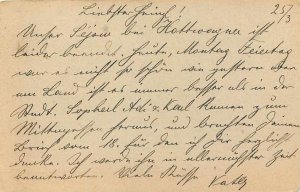 Liebster Heini! 25/3
Unser Séjour bei Hattwoger ist
leider beendet. Heute, Montag Feiertag
war es nicht so schön wie gestern aber
am Land ist es immer besser als in der
Stadt. Adi u. Karl kamen zum
Mittagessen heraus, und brachten Deinen
Brief vom 18. für den ich Dir herzlich
danke. Ich werde ihn in allernächster Zeit
beantworten. Viele Küsse Kathy